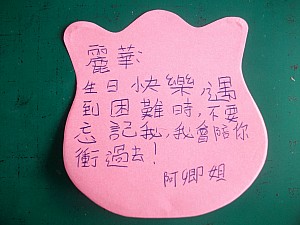 麗華:
生日快樂,遇
到困難時,不要
忘記我,我會陪你
衝過去!
阿卿姐